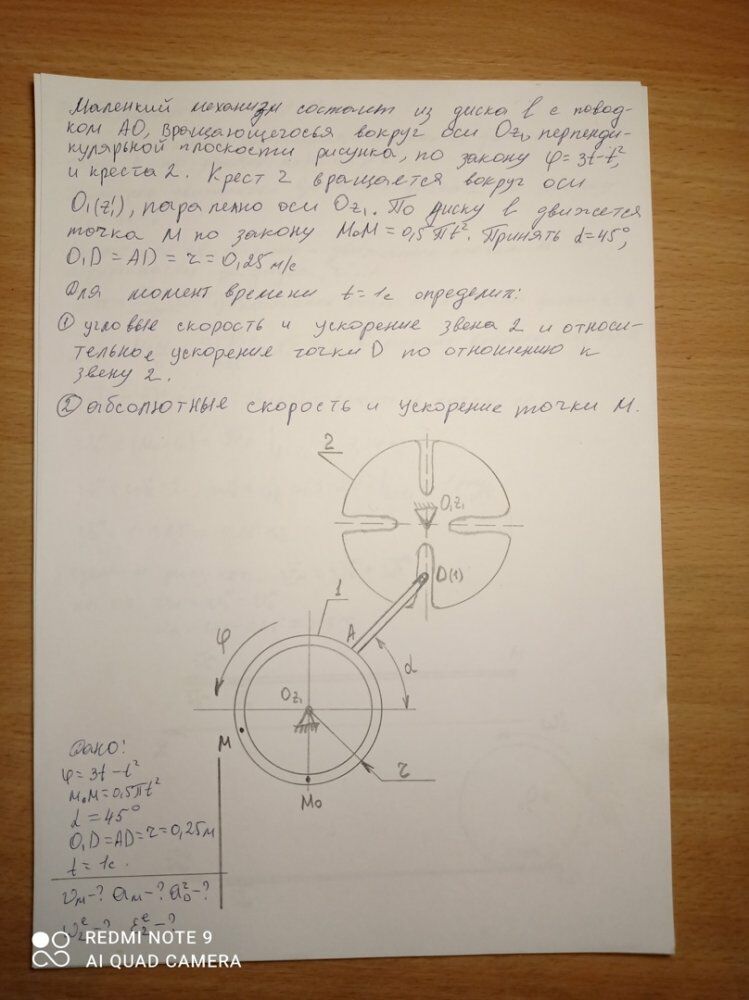 Маленкий механизм состоит из диска 1 с повод-
ком АД, вращающегося вокруг оси Oz₁, перпенди-
кулярной плоскости рисунка, по закону φ=3t-t²,
и креста 2. Крест 2 вращается вокруг оси
O₁(z₁'), паралелно оси Oz₁. По диску в движется
точка M по закону M₀M=0,5πt². Принять α=45°,
O₁D=AD=r=0,25 м/с
Для момент времени t=1c определит:
① угловые скорость и ускорение звена 2 и относи-
тельное ускорение точки D по отношению к
звену 2.
② абсолютные скорость и ускорение точки M.
2
O₁z₁
D(1)
1
A
φ
α
Oz₁
M
r
M₀
Дано:
φ=3t-t²
M₀M=0,5πt²
α=45°
O₁D=AD=r=0,25м
t=1c.
υм-? aм-? aᴰʳ-?
ω₂ᵉ-? ε₂ᵉ-?
REDMI NOTE 9
AI QUAD CAMERA